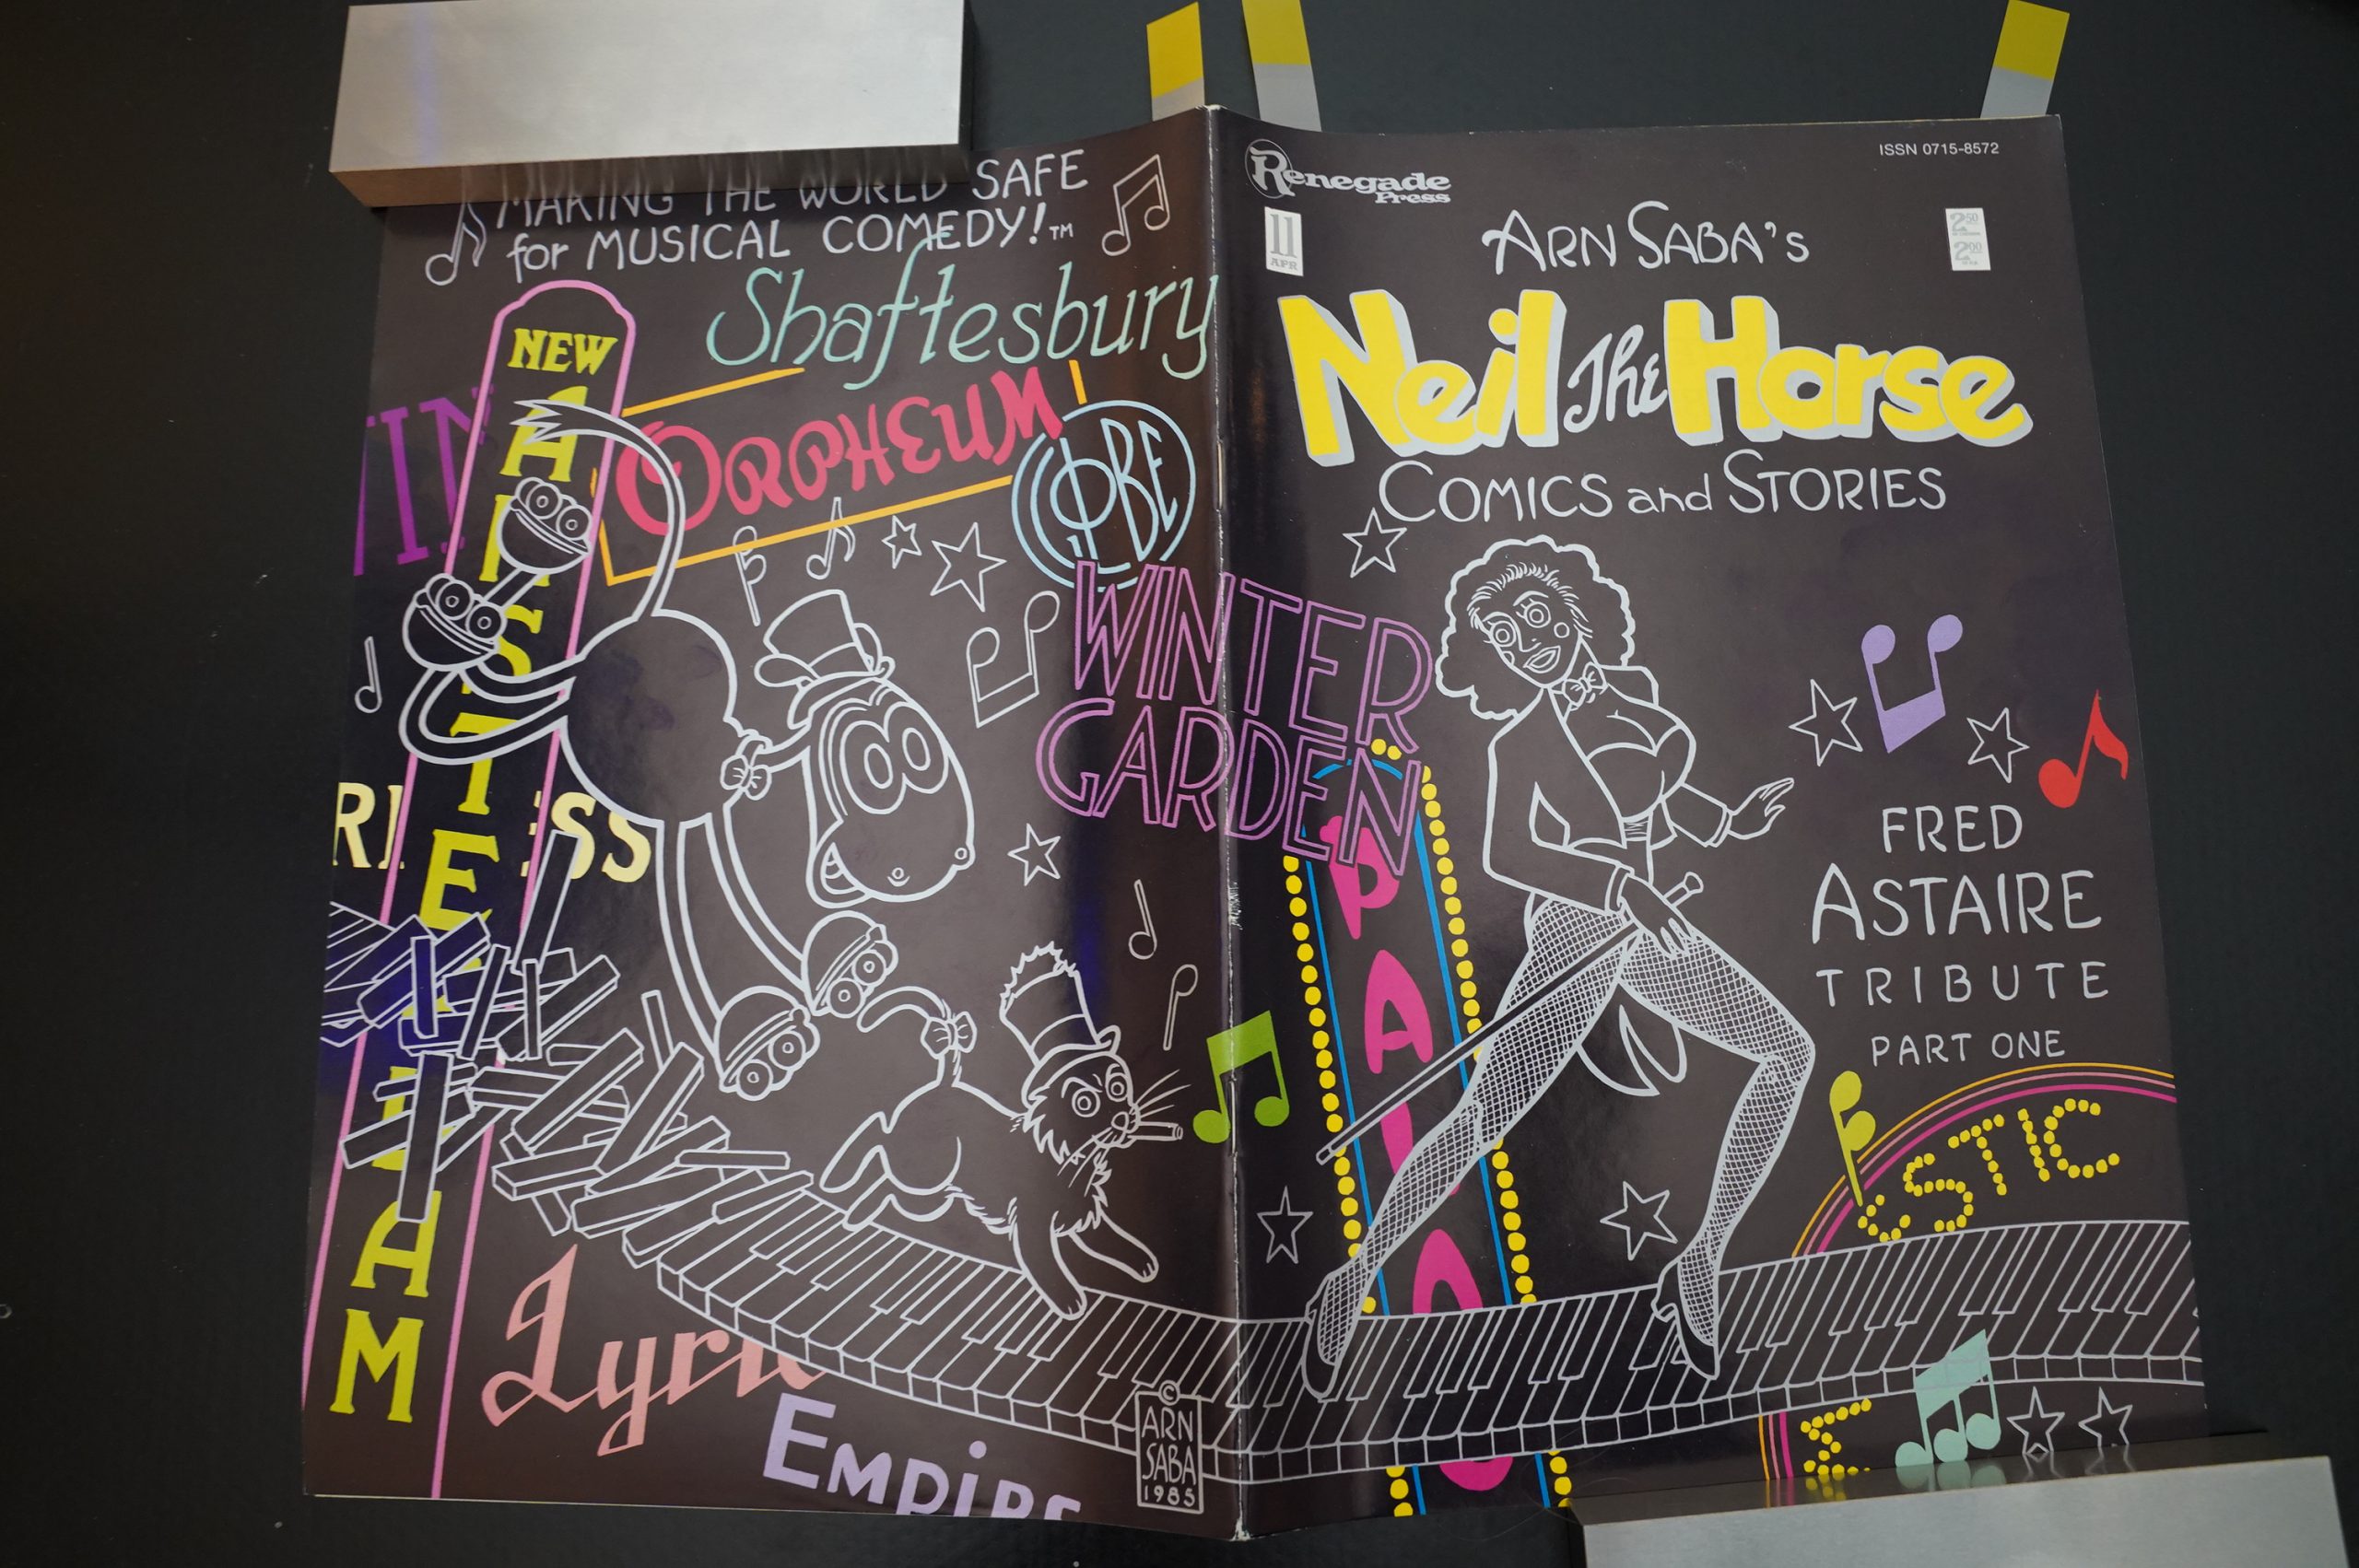 MAKING THE WORLD SAFE
for MUSICAL COMEDY!™
Shaftesbury
NEW
AMSTERDAM
ORPHEUM
GLOBE
WINTER
GARDEN
Lyric
EMPIRE
© ARN
SABA
1985
Renegade
Press
ISSN 0715-8572
11
APR
2.50
2.00
ARN SABA'S
Neil The Horse
COMICS and STORIES
FRED
ASTAIRE
TRIBUTE
PART ONE
PALA
ESTIC